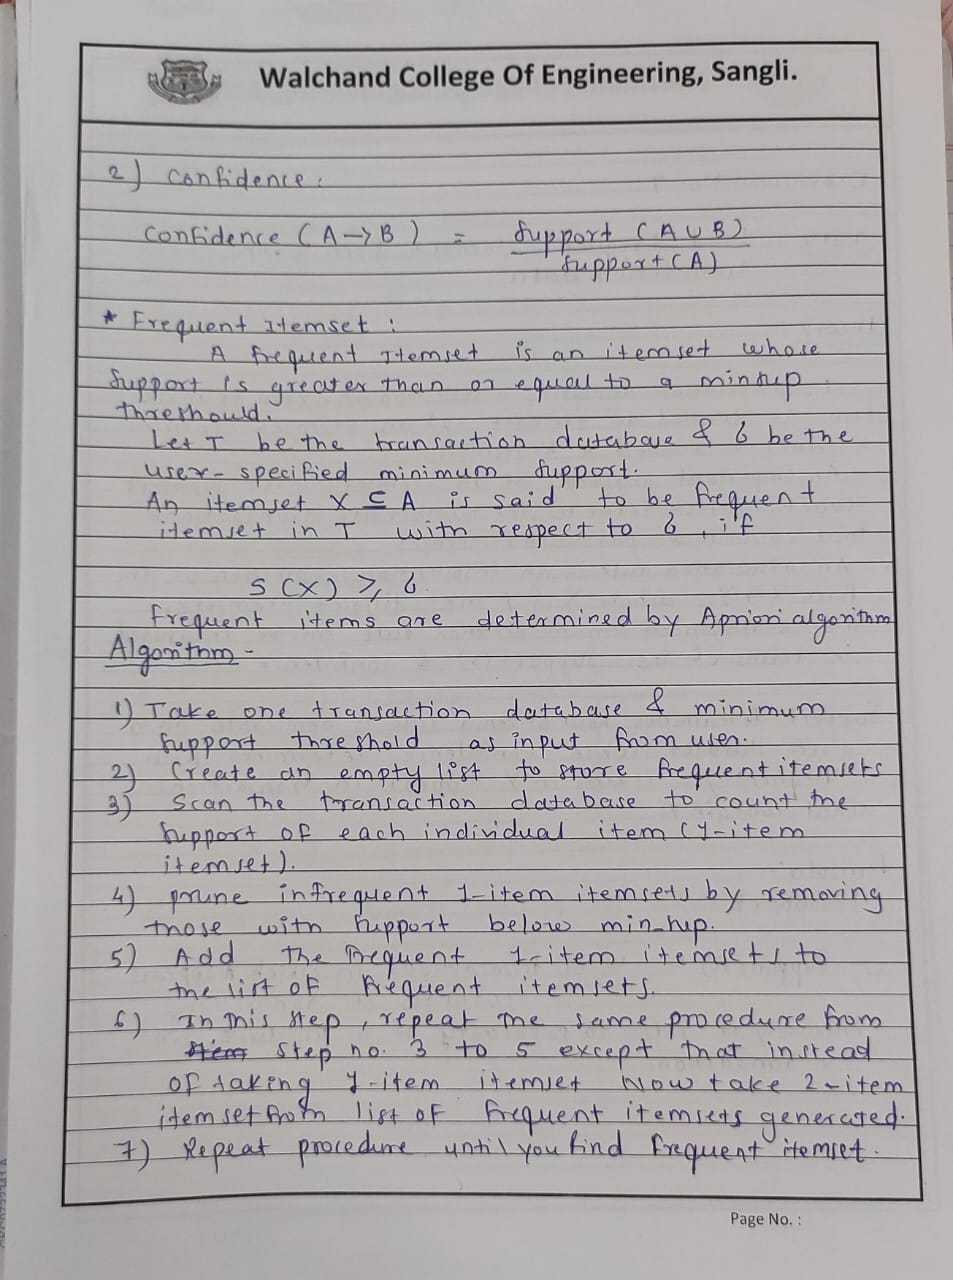 Walchand College Of Engineering, Sangli.
2) Confidence:
Confidence (A→B) = Support (A∪B)
Support (A)
* Frequent Itemset :
A frequent Itemset is an itemset whose
Support is greater than or equal to a minsup
threshould.
Let T be the transaction database & 6 be the
user-specified minimum support.
An itemset X ⊆ A is said to be frequent
itemset in T with respect to 6, if
S(X) ≥ 6
frequent items are determined by Apriori algorithm
Algorithm -
1) Take one transaction database & minimum
support threshold as input from user.
2) Create an empty list to store frequent itemsets
3) Scan the transaction database to count the
support of each individual item (1-item
itemset).
4) prune infrequent 1-item itemsets by removing
those with support below min-sup.
5) Add the frequent 1-item itemsets to
the list of frequent itemsets.
6) In this step, repeat the same procedure from
step no. 3 to 5 except that instead
of taking 1-item itemset Now take 2-item
itemset from list of frequent itemsets generated.
7) Repeat procedure until you find frequent itemset.
Page No. :